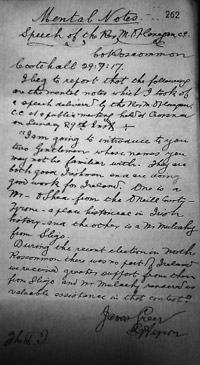 Mental Notes.
262
Speech of the Rev M. O'Flanagan, c.c.
Co Roscommon
Cootehall 29.7.17.
I beg to report that the following
are the mental notes which I took of
a speech delivered by the Rev M. O'Flanagan,
CC at a public meeting held at Crossna
on Sunday 29th Inst
"I am going to introduce to you
two Gentlemen whose names you
may not be familiar with. They are
both good Irishmen and are doing
good work for Ireland. One is a
Mr O'Shea from the O'Neill County
Tyrone a place historical in Irish
history and the other is a Mr Mulcahy
from Sligo.
During the recent election in North
Roscommon there was no part of Ireland
we received greater support from than
from Sligo and Mr Mulcahy rendered us
valuable assistance in that contest"
James